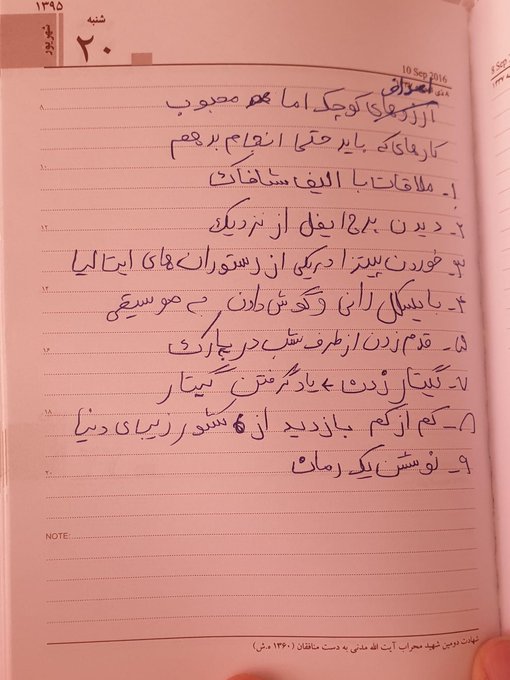 ۱۳۹۵
شنبه
۲۰
شهریور
10 Sep 2016
اهداف
آرزوهای کوچک اما محبوب
کارهای که باید حتما انجام بدهم
۱ـ ملاقات با الیف شافاک
۲ـ دیدن برج ایفل از نزدیک
۳ـ خوردن پیتزا در یکی از رستوران های ایتالیا
۴ـ بایسکل رانی و گوش دادن به موسیقی
۵ـ قدم زدن از طرف شب در پارک
۷ـ گیتار زدن ← یاد گرفتن گیتار
۸ـ کم از کم بازدید از ۶ کشور زیبای دنیا
۹ـ نوشتن یک رمان
۸
۱۰
۱۲
۱۴
۱۶
۱۸
۲۰
NOTE:
شهادت دومین شهید محراب آیت الله مدنی به دست منافقان (۱۳۶۰ ه.ش)